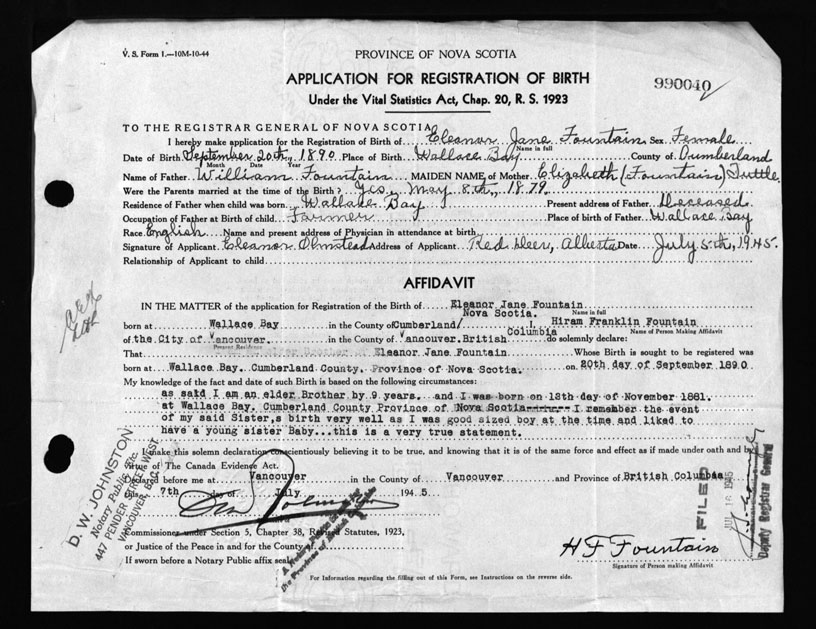 V. S. Form 1.—10M-10-44
PROVINCE OF NOVA SCOTIA
APPLICATION FOR REGISTRATION OF BIRTH
990040
Under the Vital Statistics Act, Chap. 20, R. S. 1923
TO THE REGISTRAR GENERAL OF NOVA SCOTIA
I hereby make application for the Registration of Birth of Eleanor Jane Fountain Sex Female
Name in full
Date of Birth September 20th, 1890 Place of Birth Wallace Bay County of Cumberland
Month Date Year
Name of Father William Fountain MAIDEN NAME of Mother Elizabeth (Fountain) Tuttle
Were the Parents married at the time of the Birth? Yes, May 8th, 1879
Residence of Father when child was born Wallace Bay Present address of Father Deceased
Occupation of Father at Birth of child Farmer Place of birth of Father Wallace Bay
Race English Name and present address of Physician in attendance at birth
Signature of Applicant Eleanor Olmstead Address of Applicant Red Deer, Alberta Date July 5th, 1945.
Relationship of Applicant to child
AFFIDAVIT
IN THE MATTER of the application for Registration of the Birth of Eleanor Jane Fountain
Name in full
Nova Scotia.
born at Wallace Bay in the County of Cumberland/ I, Hiram Franklin Fountain
Name of Person Making Affidavit
Columbia
of the City of Vancouver. in the County of Vancouver. British do solemnly declare:
Present Residence
That Eleanor Jane Fountain Whose Birth is sought to be registered was
born at Wallace Bay. Cumberland County. Province of Nova Scotia. on 20th day of September 1890
My knowledge of the fact and date of such Birth is based on the following circumstances:
as said I am an elder Brother by 9 years. and I was born on 13th day of November 1881.
at Wallace Bay. Cumberland County Province of Nova Scotia I remember the event
of my said Sister,s birth very well as I was good sized boy at the time and liked to
have a young sister Baby...this is a very true statement.
I make this solemn declaration conscientiously believing it to be true, and knowing that it is of the same force and effect as if made under oath and by
virtue of The Canada Evidence Act.
Declared before me at Vancouver in the County of Vancouver and Province of British Columbia
this 7th day of July 1945
Commissioner under Section 5, Chapter 38, Revised Statutes, 1923,
or Justice of the Peace in and for the County of
If sworn before a Notary Public affix seal
H F Fountain
Signature of Person making Affidavit
For Information regarding the filling out of this Form, see Instructions on the reverse side.
D. W. JOHNSTON
Notary Public, Etc.
447 PENDER STREET WEST
VANCOUVER, B.C.
A Notary Public in and for
the Province of British Columbia
FILED
JUL 16 1945
Deputy Registrar General